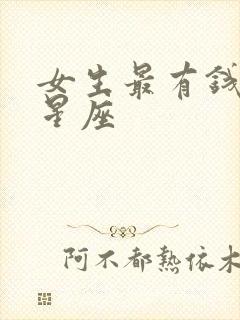 女生最有錢
星座
阿不都熱依木